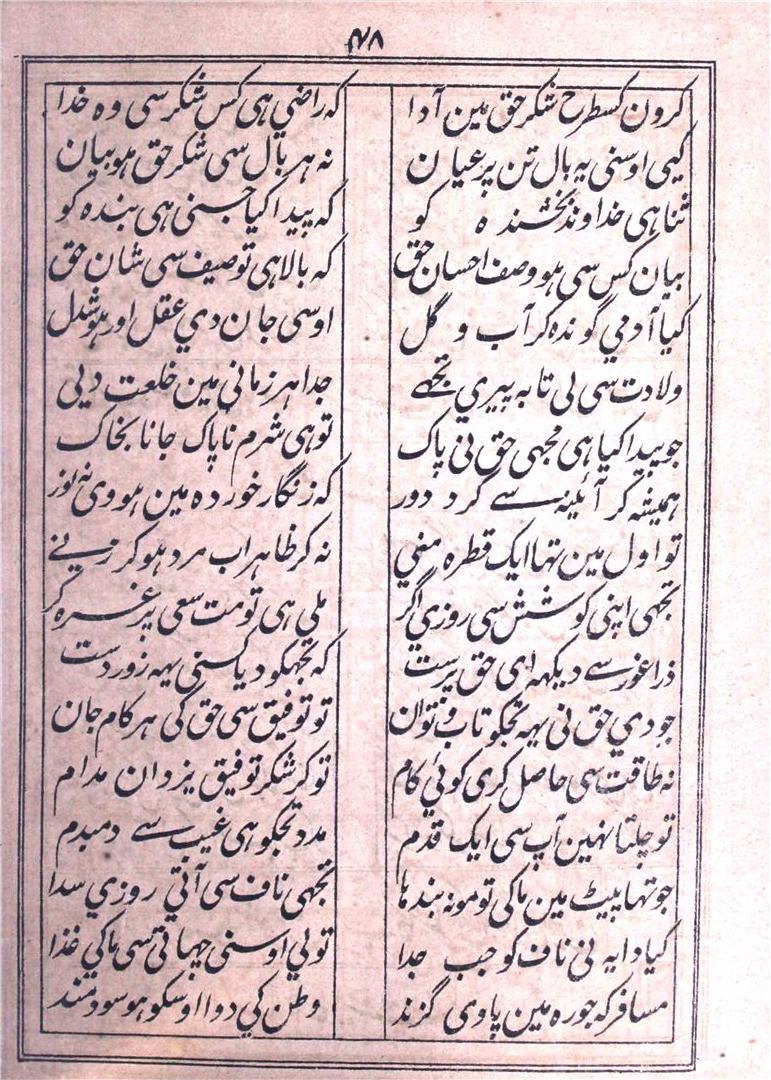 ۴۸
کرون کسطرح شکر حق مین آدا که راضي هی کس شکر سی وه خدا
کیی اوسنی یه بال تن پر عیان نه هر بال سی شکر حق هو بیان
ثنا هی خداوند بخشنده کو که پیدا کیا جسنی هی بنده کو
بیان کس سی هو وصف احسان حق که بالا هی توصیف سی شان حق
کیا آدمي گونده کر آب و گل اوسی جان دي عقل اور هوش دل
ولادت سی لی تا به پیري تجهے جدا هر زمانی مین خلعت دیی
جو پیدا کیا هی مجهی حق نی پاک تو هی شرم ناپاک جانا بخاک
همیشه کر آئینه سے گرد دور که زنگار خورده مین هووی نه نور
تو اول مین تها ایک قطره مني نه کر ظاهر اب مرد هو کر زنے
تجهی اپنی کوشش سی روزي اگر ملي هی تو مت سعی پر غره کر
ذرا غور سے دیکهه ای حق پرست که تجهکو دیا کسنی یهه زور دست
جو دي حق نی یهه تجکو تاب و توان تو توفیق سی حق کی هر کام جان
نه طاقت سی حاصل کری کوئي کام تو کر شکر توفیق یزدان مدام
تو چلتا نهین آپ سی ایک قدم مدد تجکو هی غیب سے دمبدم
جو تها پیٹ مین ماکی تو مونه بندها تجهی ناف سی آتي روزي سدا
کیا دایه نی ناف کو جب جدا تو لي اوسنی چهاتي سی ماکي غذا
مسافر که جو ره مین پاوی گزند وطن کي دوا اوسکو هو سودمند